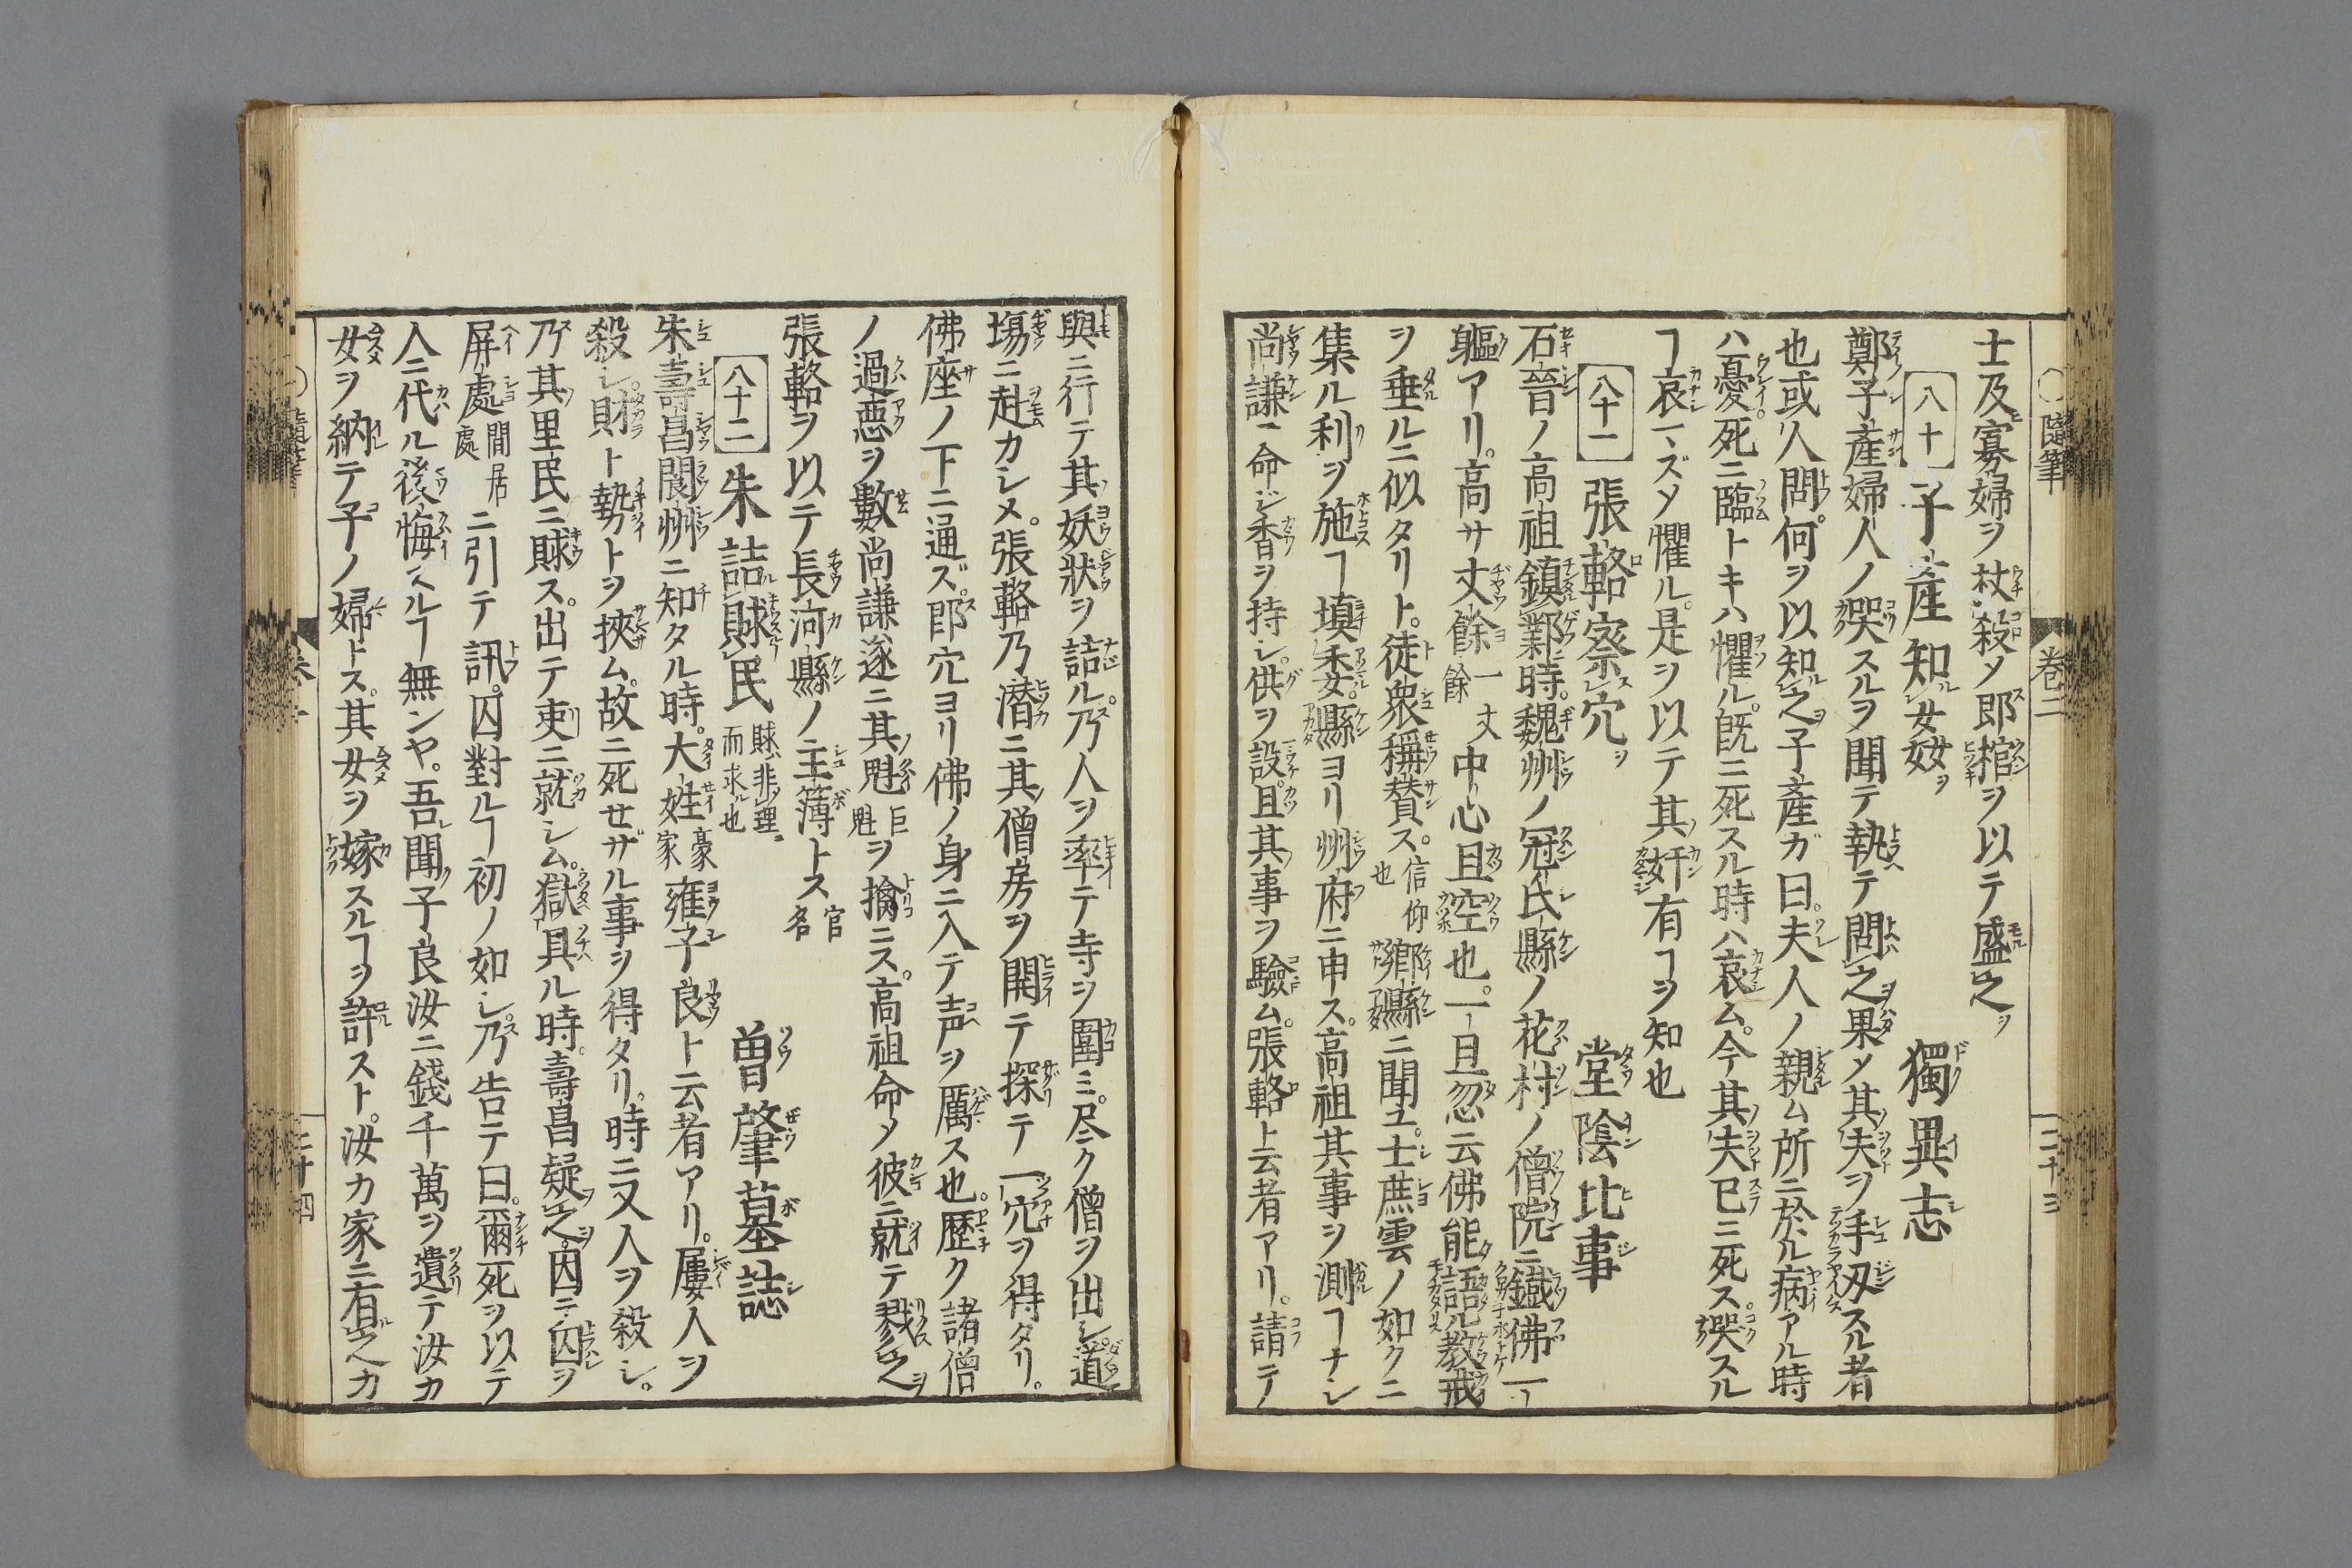 ○隨筆 卷二 二十三
士及寡婦ヲ杖殺メ郎棺ヲ以テ盛之ヲ
八十 子產知女姦ヲ 獨異志
鄭子產婦人ノ哭スルヲ聞テ執テ問之果メ其夫ヲ手刄スル者
也或人問何ヲ以知之子產ガ曰夫人ノ親ム所ニ於ル病アル時
ハ憂死ニ臨トキハ懼ル既ニ死スル時ハ哀ム今其夫已ニ死ス哭スル
ヿ哀マズメ懼ル是ヲ以テ其奸有ヿヲ知也
八十一 張輅察穴ヲ 堂陰比事
石晉ノ高祖鎮鄴時魏州ノ冠氏縣ノ花村ノ僧院ニ鐵佛一
軀アリ高サ丈餘一丈餘中心且空也一旦忽云佛能語ル教戒
ヲ垂ルニ似タリト徒衆稱賛ス信仰也鄉縣ニ聞エ士庶雲ノ如クニ
集ル利ヲ施ヿ填委縣ヨリ州府ニ申ス高祖其事ヲ測ヿナシ
尚謙ニ命ジ香ヲ持シ供ヲ設且其事ヲ驗ム張輅ト云者アリ請テ
與ニ行テ其妖狀ヲ詰ル乃人ヲ率テ寺ヲ圍ミ尽ク僧ヲ出シ道
場ニ赴カシメ張輅乃潛ニ其僧房ヲ開テ探テ一穴ヲ得タリ
佛座ノ下ニ通ズ即穴ヨリ佛ノ身ニ入テ声ヲ厲ス也歷ク諸僧
ノ過惡ヲ數尚謙遂ニ其魁巨魁ヲ擒ニス高祖命メ彼ニ就テ戮之
張輅ヲ以テ長河縣ノ主簿トス官名
八十二 朱詰賕民賕ハ非理而求ル也 曾肇墓誌
朱壽昌閬州ニ知タル時大姓豪家雍子良ト云者アリ屢人ヲ
殺シ財ト勢トヲ挾ム故ニ死セザル事ヲ得タリ時ニ又人ヲ殺シ
乃其里民ニ賕ス出テ吏ニ就シム獄具ル時壽昌疑之因テ囚ヲ
屏處間居處ニ引テ訊囚對ルヿ初ノ如シ乃告テ曰爾死ヲ以テ
人ニ代ル後悔スルヿ無ンヤ吾聞子良汝ニ錢千萬ヲ遺テ汝カ
女ヲ納テ子ノ婦トス其女ヲ嫁スルヿヲ許スト汝カ家ニ有之カ